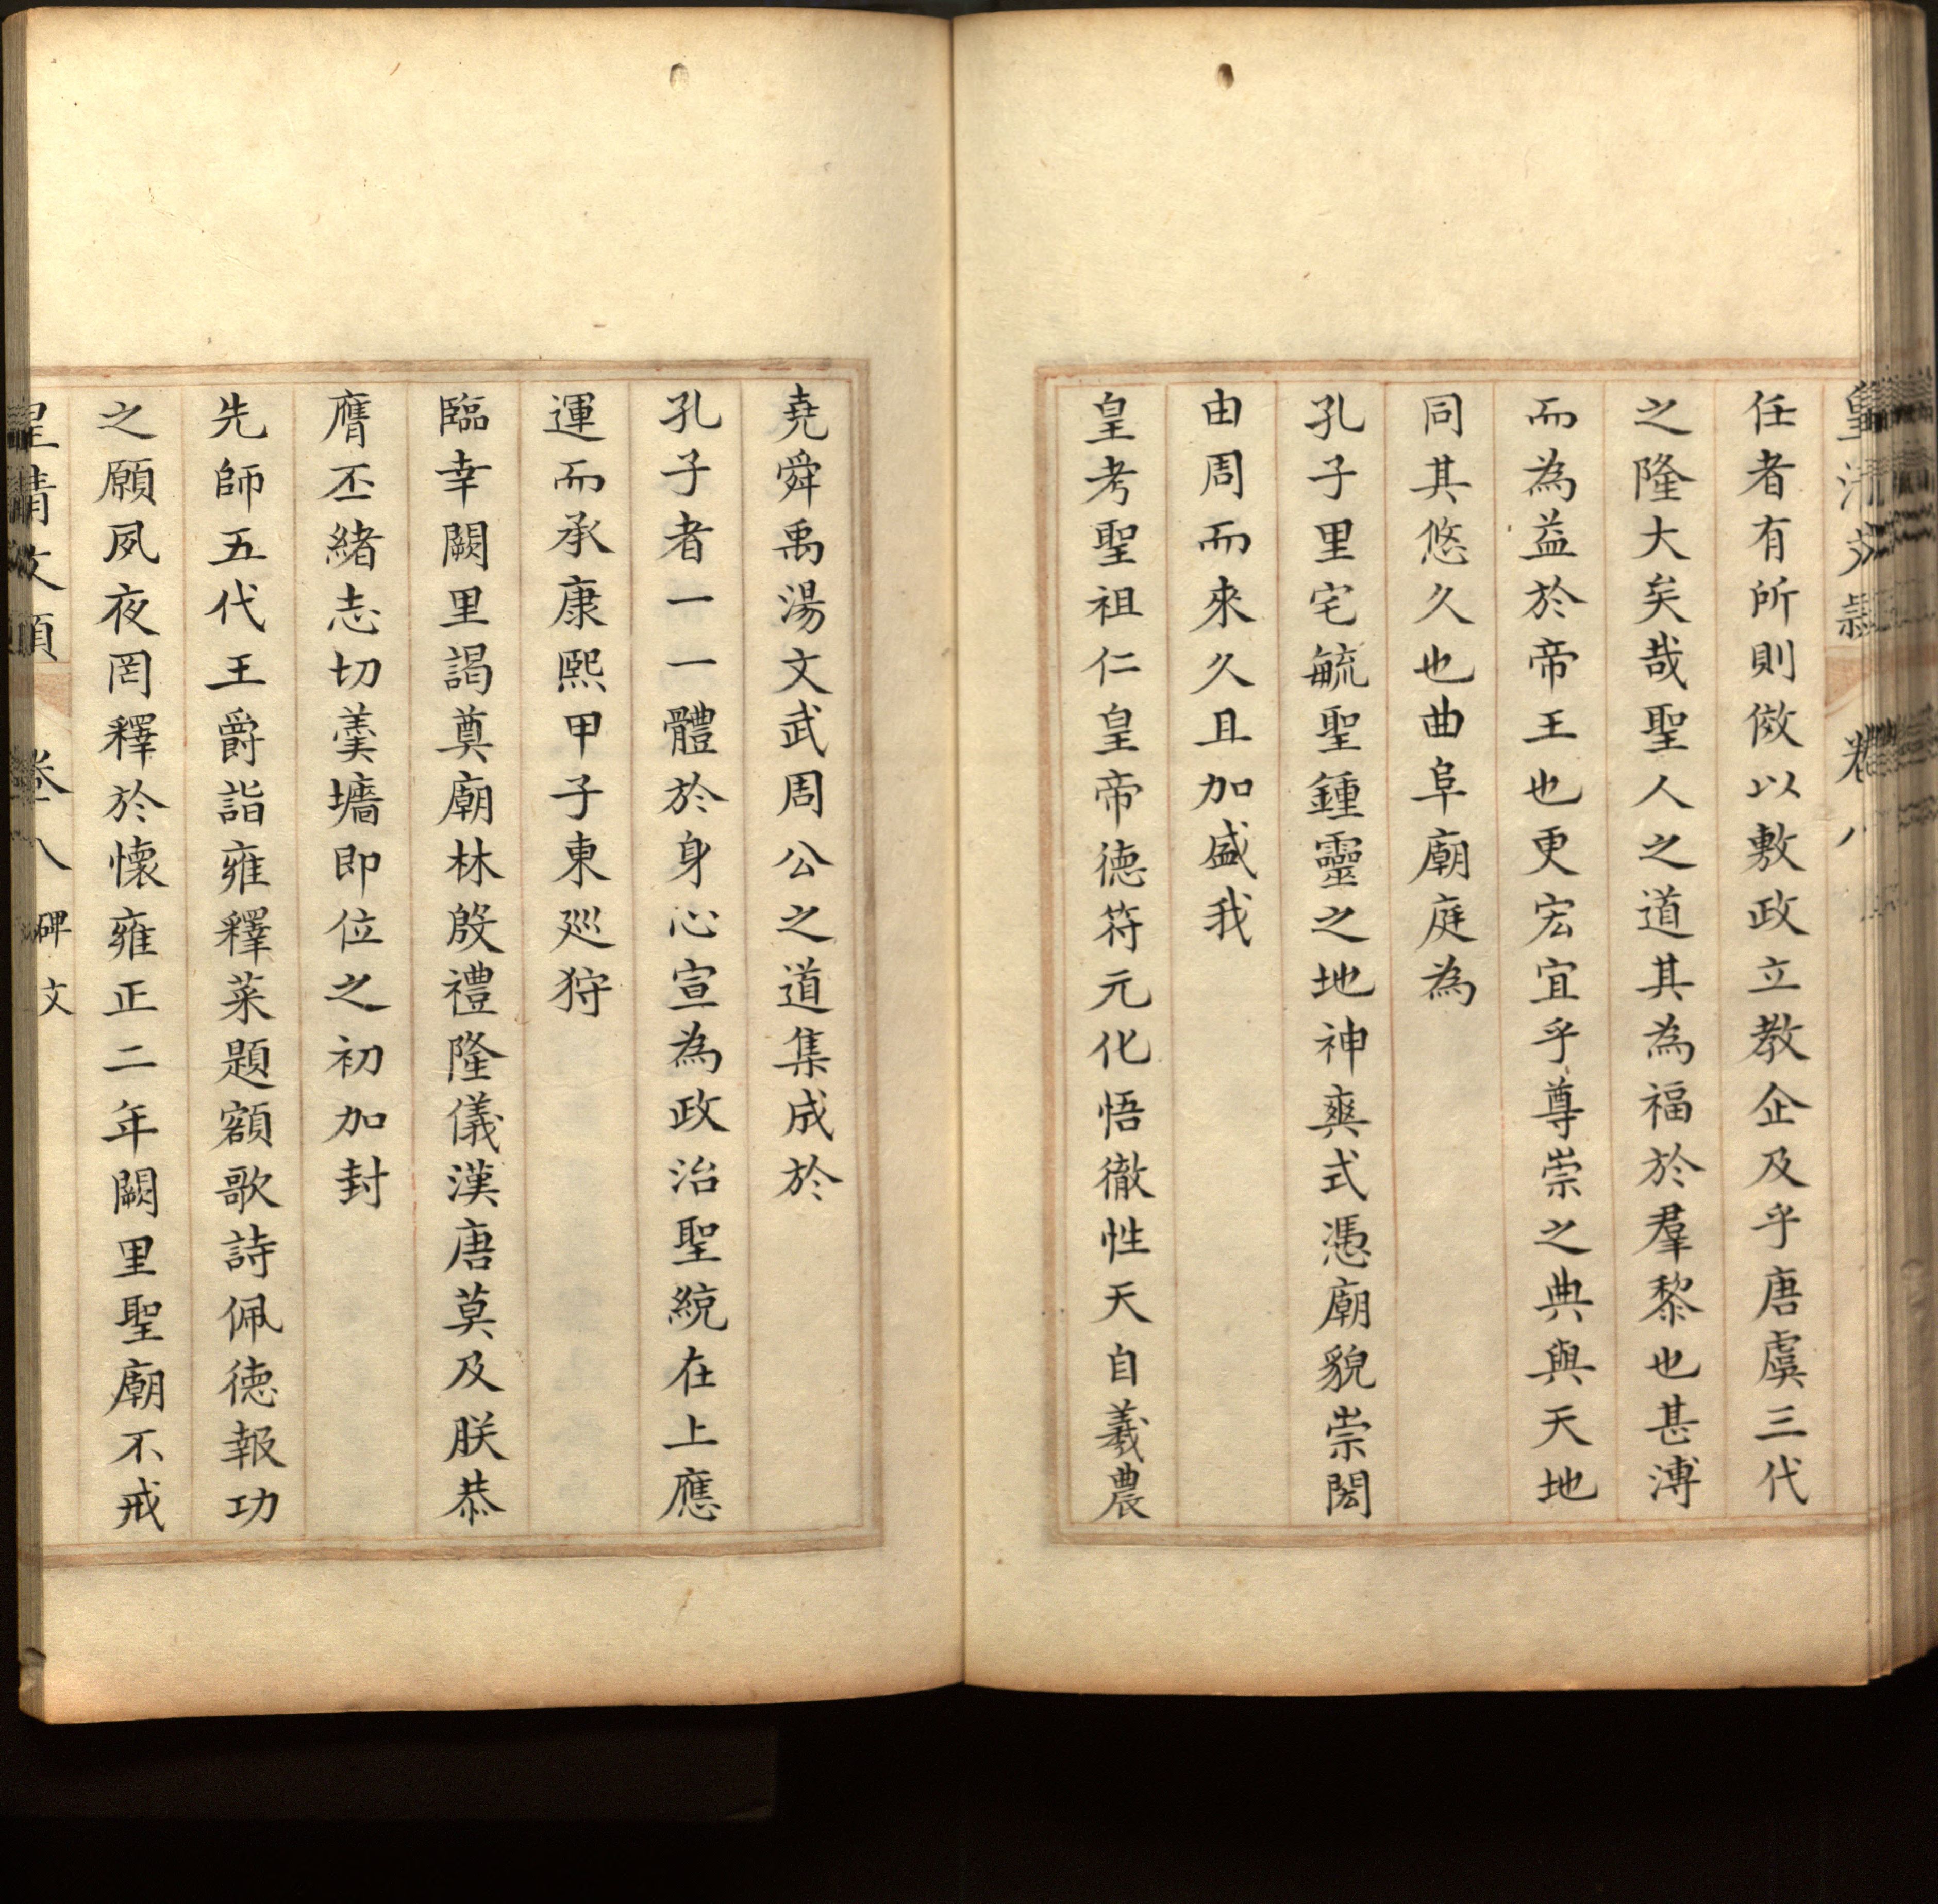 任者有所則傚以敷政立教企及乎唐虞三代
之隆大矣哉聖人之道其為福於羣黎也甚溥
而為益於帝王也更宏宜乎尊崇之典與天地
同其悠久也曲阜廟庭為
孔子里宅毓聖鍾靈之地神爽式憑廟貌崇閎
由周而來久且加盛我
皇考聖祖仁皇帝德符元化悟徹性天自羲農
堯舜禹湯文武周公之道集成於
孔子者一一體於身心宣為政治聖統在上應
運而承康熙甲子東廵狩
臨幸闕里謁奠廟林殷禮隆儀漢唐莫及朕恭
膺丕緒志切羹墻即位之初加封
先師五代王爵詣雍釋菜題額歌詩佩德報功
之願夙夜罔釋於懷雍正二年闕里聖廟不戒
皇清文穎 卷八 碑文